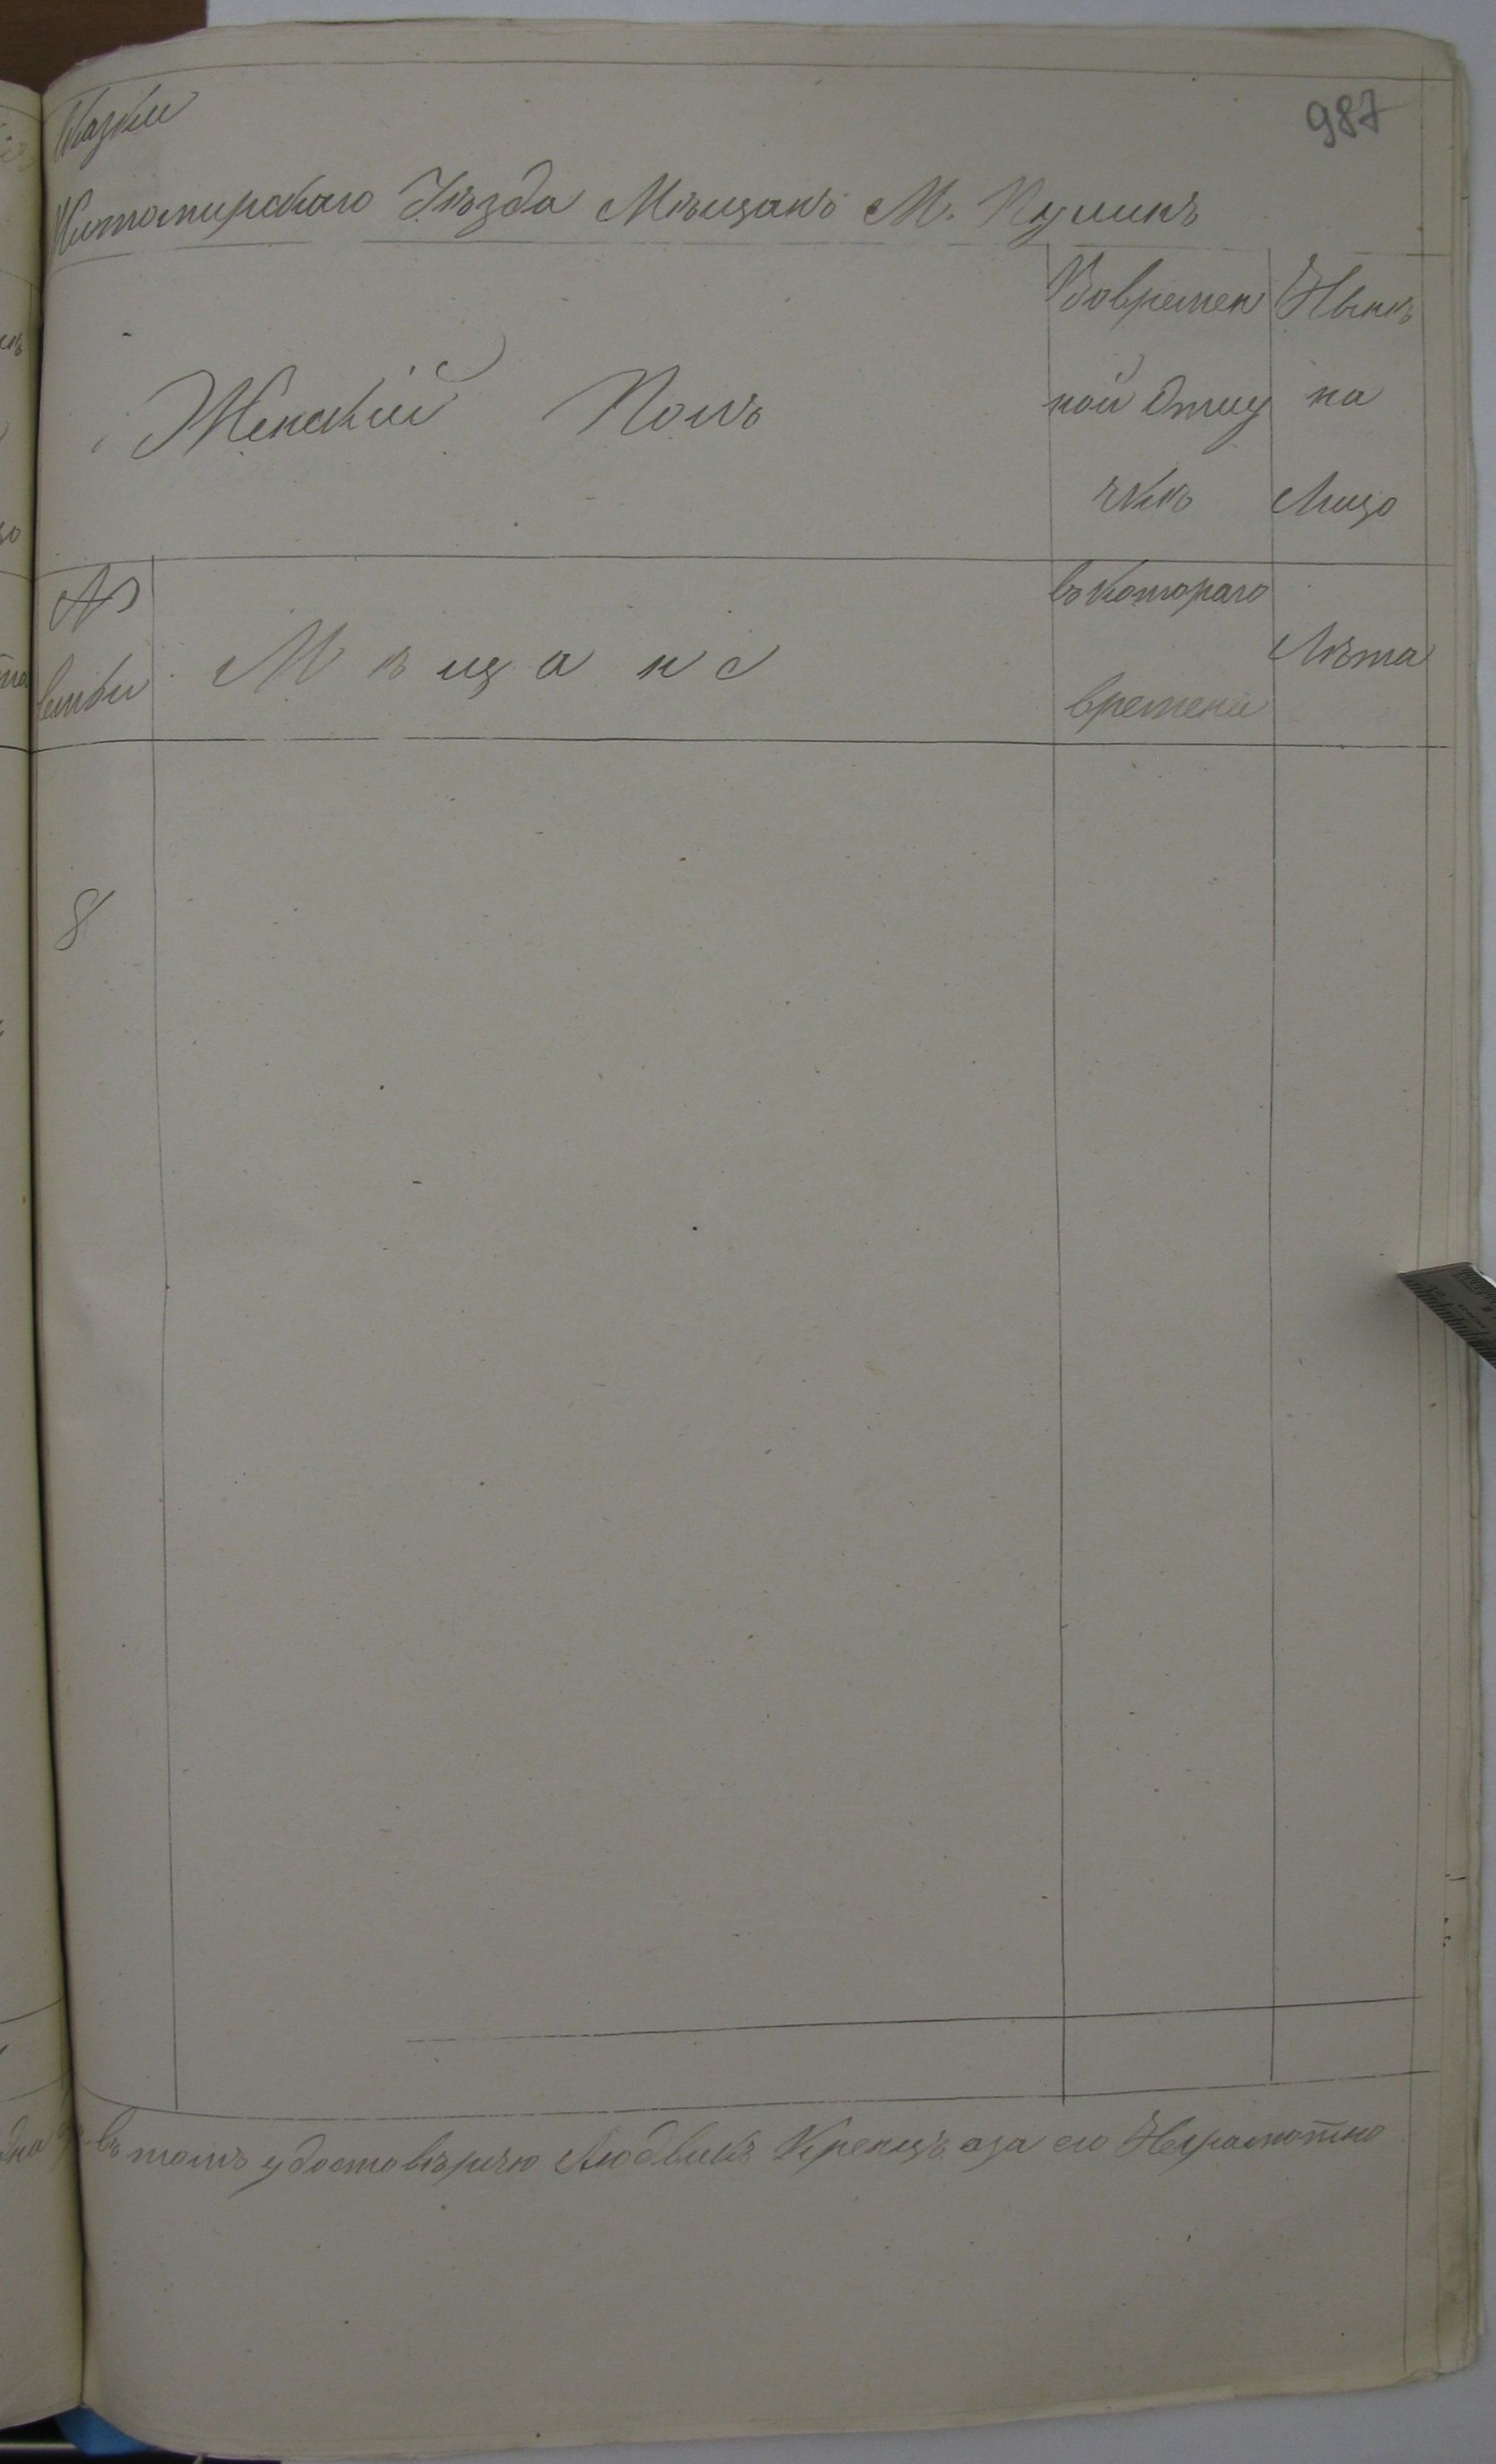 987
Сказки
Житомирскаго Уѣзда Мѣщанъ М. Кулинъ
Женскій Полъ
Вовремен
ной Отлу
чкѣ
Нынѣ
на
Лицо
№
Семьи
Мѣщане
въ котораго
времени
Лѣта
8
въ томъ удостовѣряю Людвикъ Кренцъ аза его Неграмотно